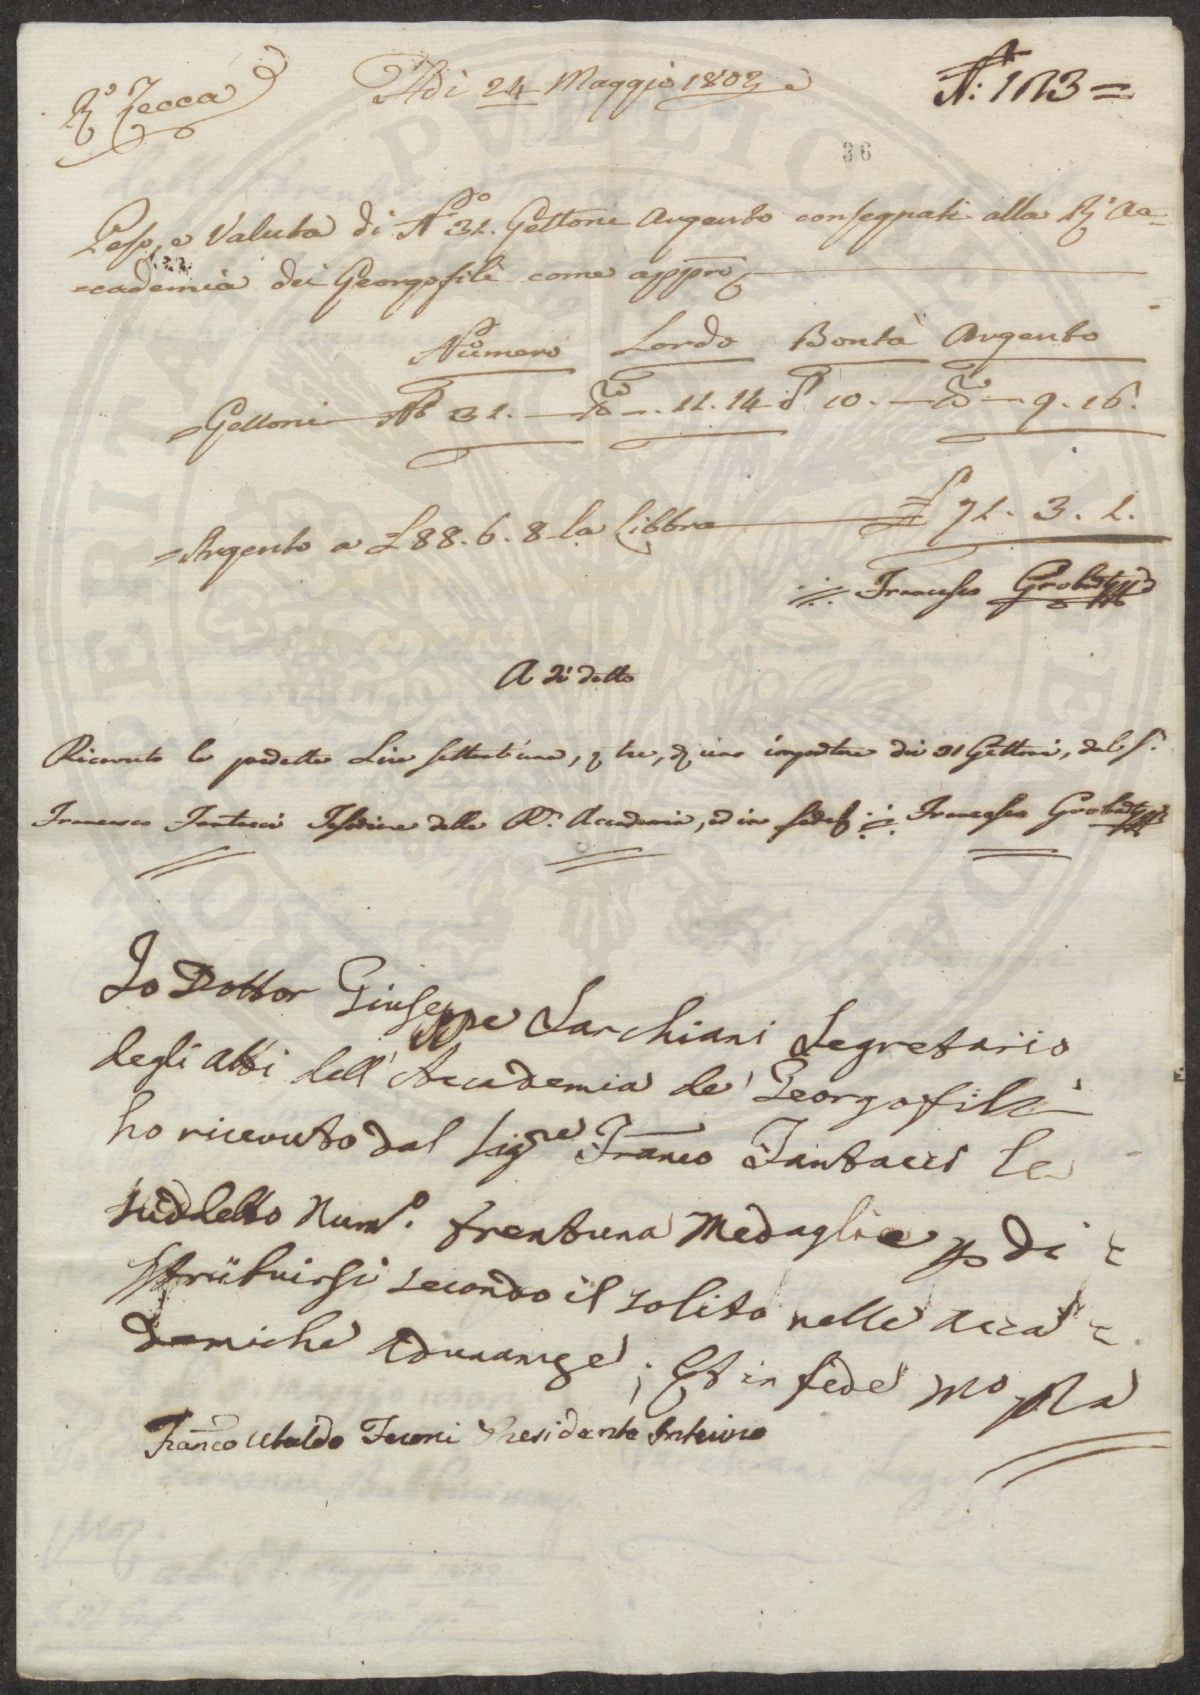 Rº Zecca
Adì 24 Maggio 1803
Nº: 113=
36
Peso, e Valuta di Nº 31. Gettone Argento consegnati alla Rl Ac=
=cademia dei Georgofili come appo
Numero Lordo Bontà Argento
=Gettoni Nº 31. 11.14 10. 9.16.
=Argento a £ 88.6.8 la Libbra £ 71.3.1.
Francesco
A dì detto
Ricevuto le predette Lire settantuna, tre, uno importare di 31 Gettoni, dal Sr.
Francesco Fantacci della Rl. Accademia, ed in fede Francesco
Io Dottor Giuseppe Sarchiani Segretario
degli atti dell'Accademia de' Georgofili
ho ricevuto dal Sigre Franco Fantacci le
suddette Numº. trentuna Medaglie p di=
stribuirsi secondo il solito nelle Acca=
demiche Adunanze; Et in fede Mo ppa
Franco Ubaldo Feroni Presidente Interino
PUBLICAE
PROSPERITATI